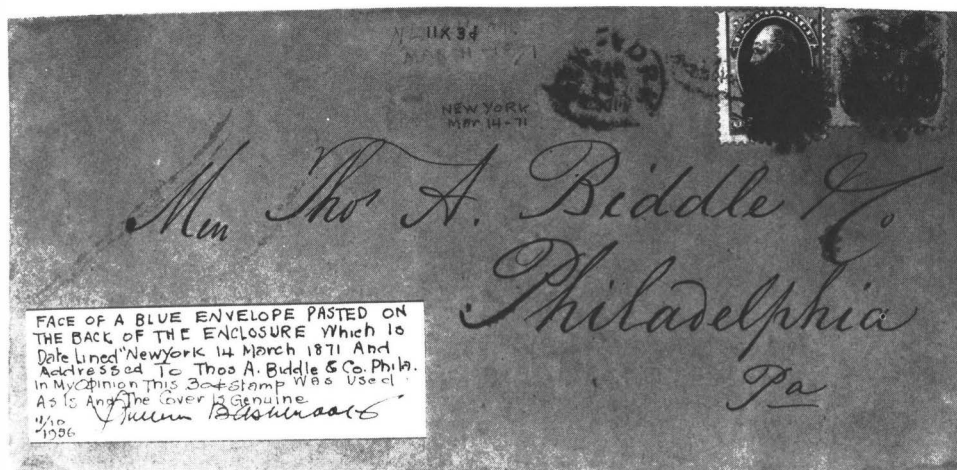 11X3¢
MARCH 1871
NEW YORK
MAR 14-71
U.S. POSTAGE
Thos A. Biddle & Co
Philadelphia
Pa
FACE OF A BLUE ENVELOPE PASTED ON
THE BACK OF THE ENCLOSURE Which Is
Date Lined "New York 14 March 1871 And
Addressed To Thos A. Biddle & Co. Phila.
In My Opinion This 3¢ Stamp Was Used
As Is And The Cover Is Genuine
11/10
1956